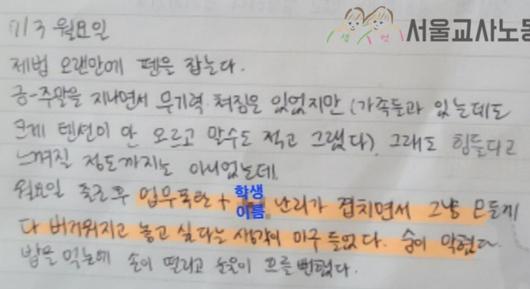 서울교사노동
7/3 월요일
제법 오랜만에 펜을 잡는다.
금-주말을 지나면서 무기력 쳐짐은 있었지만 (가족들과 있는데도
크게 텐션이 안 오르고 말수도 적고 그랬다), 그래도 힘들다고
느껴질 정도까지는 아니었는데.
월요일 출근 후 업무폭탄 + 학생이름 난리가 겹치면서 그냥 모든게
다 버거워지고 놓고 싶다는 생각이 마구 들었다. 숨이 막혔다.
밥을 먹는데 손이 떨리고 눈물이 흐를 뻔했다.